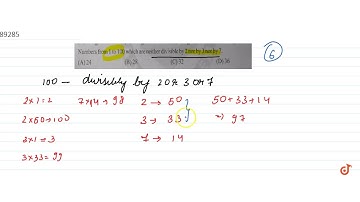 89285
Numbers from 1 to 100 which are neither divisible by 2 nor by 3 nor by 7
(A) 24 (B) 28 (C) 32 (D) 36
6
100 - divisibly by 2 or 3 or 7
2x1=2 7x14=98 2 → 50 50+33+14
2x50=100 3 → 33 → 97
3x1=3 7 → 14
3x33=99